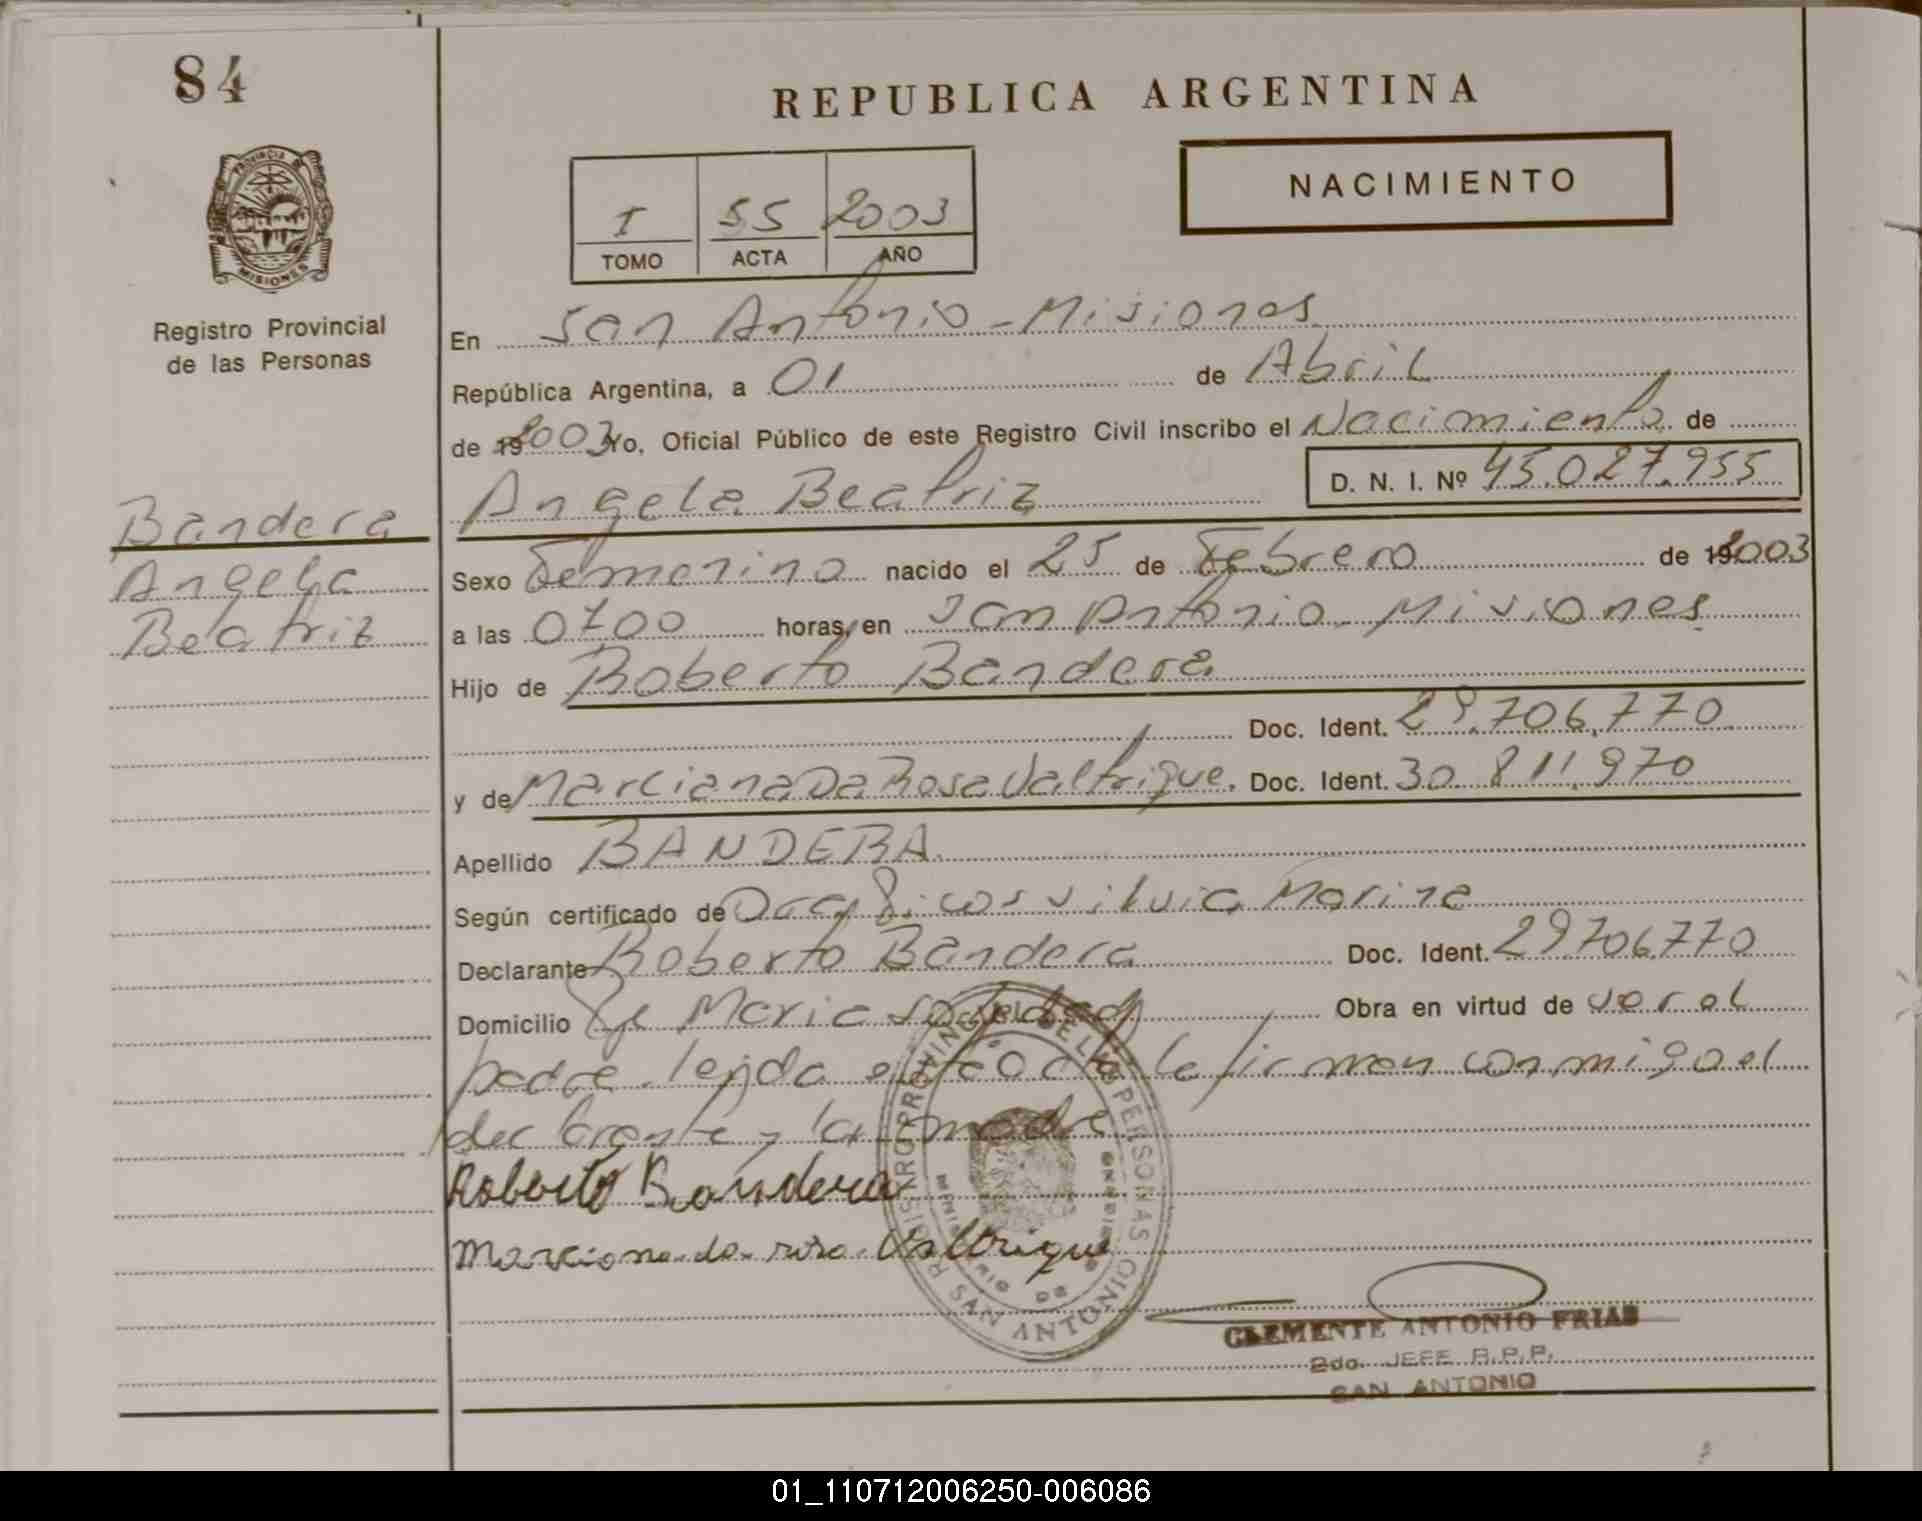 84
REPUBLICA ARGENTINA
NACIMIENTO
I 55 2003
TOMO ACTA AÑO
PROVINCIA DE
MISIONES
Registro Provincial
de las Personas
En San Antonio - Misiones
República Argentina, a 01 de Abril
de 192003 Yo, Oficial Público de este Registro Civil inscribo el Nacimiento de
Angela Beatriz D. N. I. Nº 45.027.955
Bandera
Angela
Beatriz
Sexo Femenino nacido el 25 de Febrero de 192003
a las 0700 horas, en San Antonio - Misiones
Hijo de Roberto Bandera
Doc. Ident. 29.706.770
y de Marciana Da Rosa Valtrique. Doc. Ident. 30.811.970
Apellido BANDERA.
Según certificado de Silvia Marina
Declarante Roberto Bandera Doc. Ident. 29706.770
Domicilio Maria Soledad Obra en virtud de ser el
padre. leída el acta la firman conmigo el
declarante y la madre
Roberto Bandera
Marciana da rosa Valtrique
REGISTRO PROVINCIAL DE LAS PERSONAS
MINISTERIO DE GOBIERNO
SAN ANTONIO
CLEMENTE ANTONIO FRIAS
2do. JEFE R.P.P.
SAN ANTONIO
01_110712006250-006086